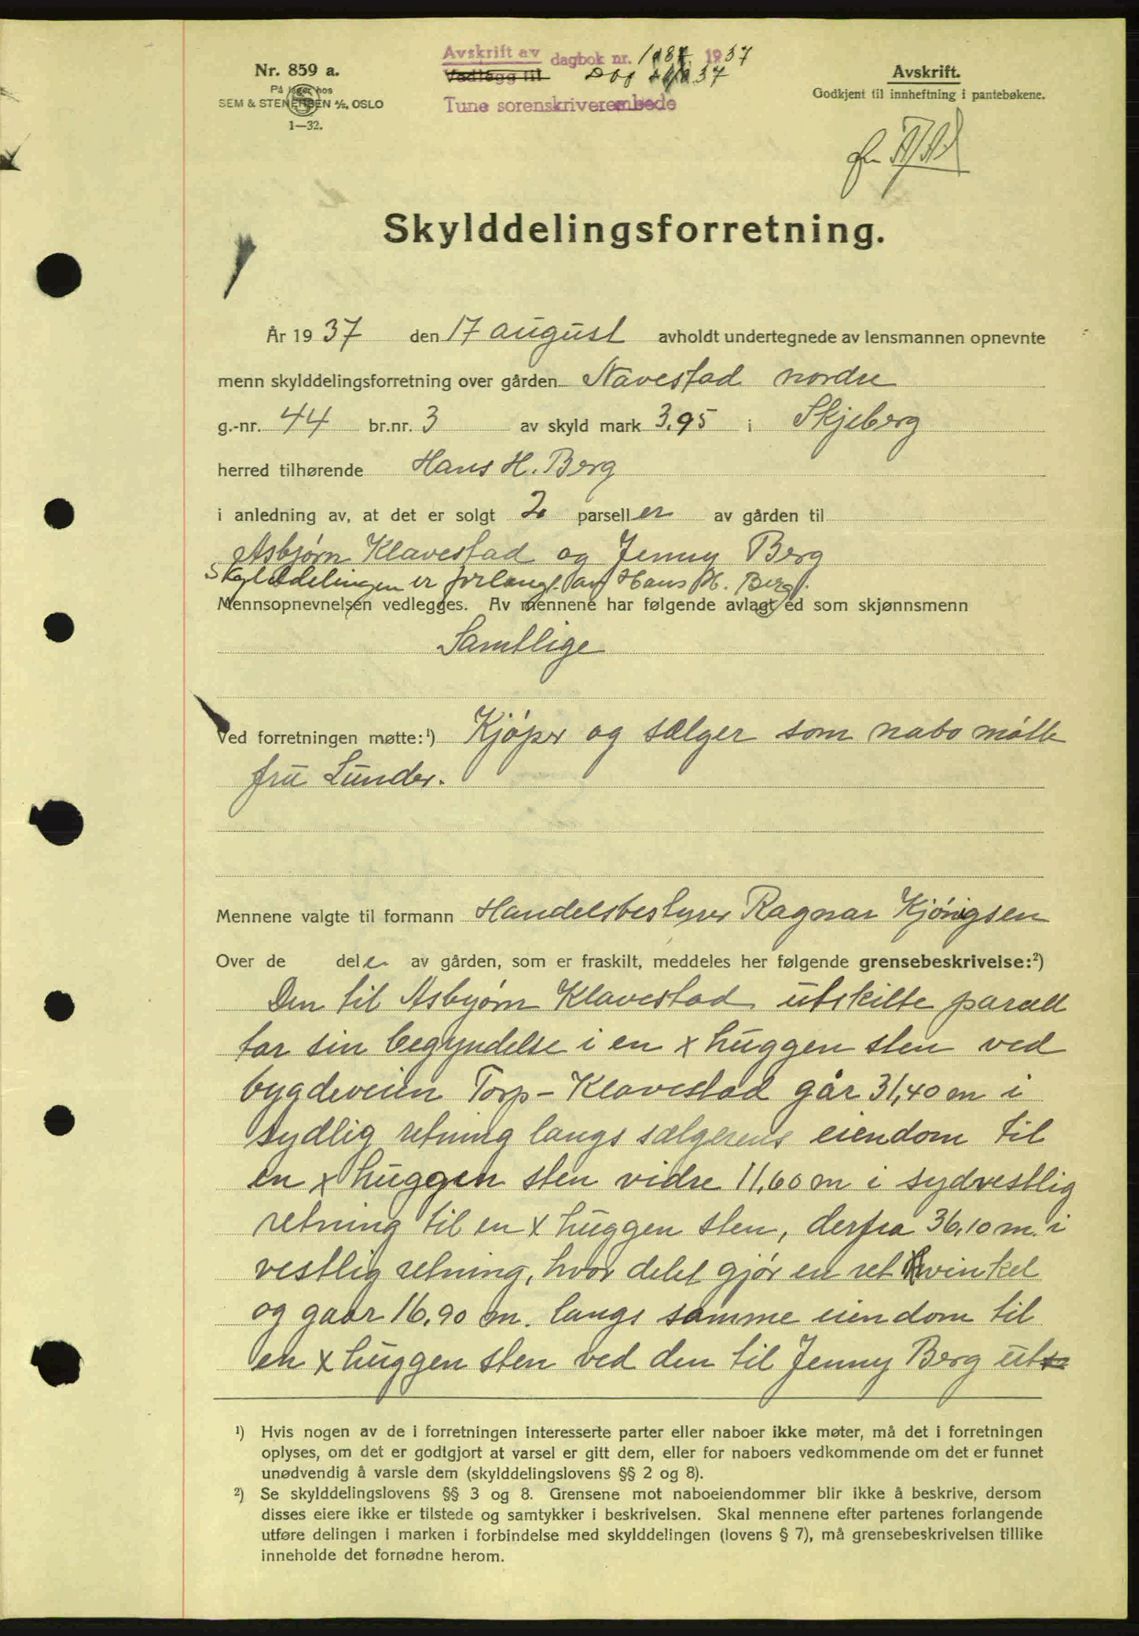 Nr. 859 a.
På lager hos
SEM & STENERSEN A/S, OSLO
1—32.
Avskrift av dagbok nr. 1937
Vedlegg til
Tune sorenskriverembede
Avskrift.
Godkjent til innheftning i pantebøkene.
Skylddelingsforretning.
År 1937 den 17 august avholdt undertegnede av lensmannen opnevnte
menn skylddelingsforretning over gården Navestad nordre
g.-nr. 44 br.nr. 3 av skyld mark 3,95 i Skjeberg
herred tilhørende Hans H. Berg
i anledning av, at det er solgt 2 parseller av gården til
Asbjørn Klavestad og Jenny Berg
Skylddelingen er forlangt av Hans H. Berg.
Mennsopnevnelsen vedlegges. Av mennene har følgende avlagt ed som skjønnsmenn
Samtlige
Ved forretningen møtte:¹) Kjøper og sælger som nabo møtte
fru Lunder.
Mennene valgte til formann Handelsbestyrer Ragnar Kjönigsen
Over de dele av gården, som er fraskilt, meddeles her følgende grensebeskrivelse:²)
Den til Asbjørn Klavestad utskilte parsell
tar sin begyndelse i en x huggen sten ved
bygdeveien Torp - Klavestad går 31,40 m i
sydlig retning langs sælgerens eiendom til
en x huggen sten vidre 11,60 m i sydvestlig
retning til en x huggen sten, derfra 36,10 m. i
vestlig retning, hvor delet gjør en ret vinkel
og gaar 16,90 m. langs samme eiendom til
en x huggen sten ved den til Jenny Berg ut
¹) Hvis nogen av de i forretningen interesserte parter eller naboer ikke møter, må det i forretningen
oplyses, om det er godtgjort at varsel er gitt dem, eller for naboers vedkommende om det er funnet
unødvendig å varsle dem (skylddelingslovens §§ 2 og 8).
²) Se skylddelingslovens §§ 3 og 8. Grensene mot naboeiendommer blir ikke å beskrive, dersom
disses eiere ikke er tilstede og samtykker i beskrivelsen. Skal mennene efter partenes forlangende
utføre delingen i marken i forbindelse med skylddelingen (lovens § 7), må grensebeskrivelsen tillike
inneholde det fornødne herom.